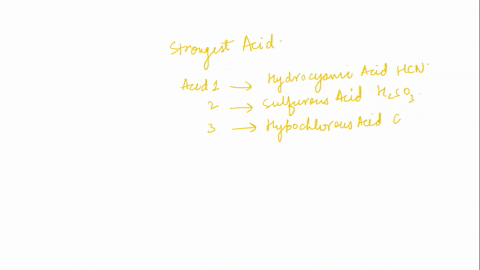 Strongest Acid.
Acid 1 → Hydrocyanic Acid HCN.
2 → Sulfurous Acid H₂SO₃.
3 → Hypochlorous Acid C